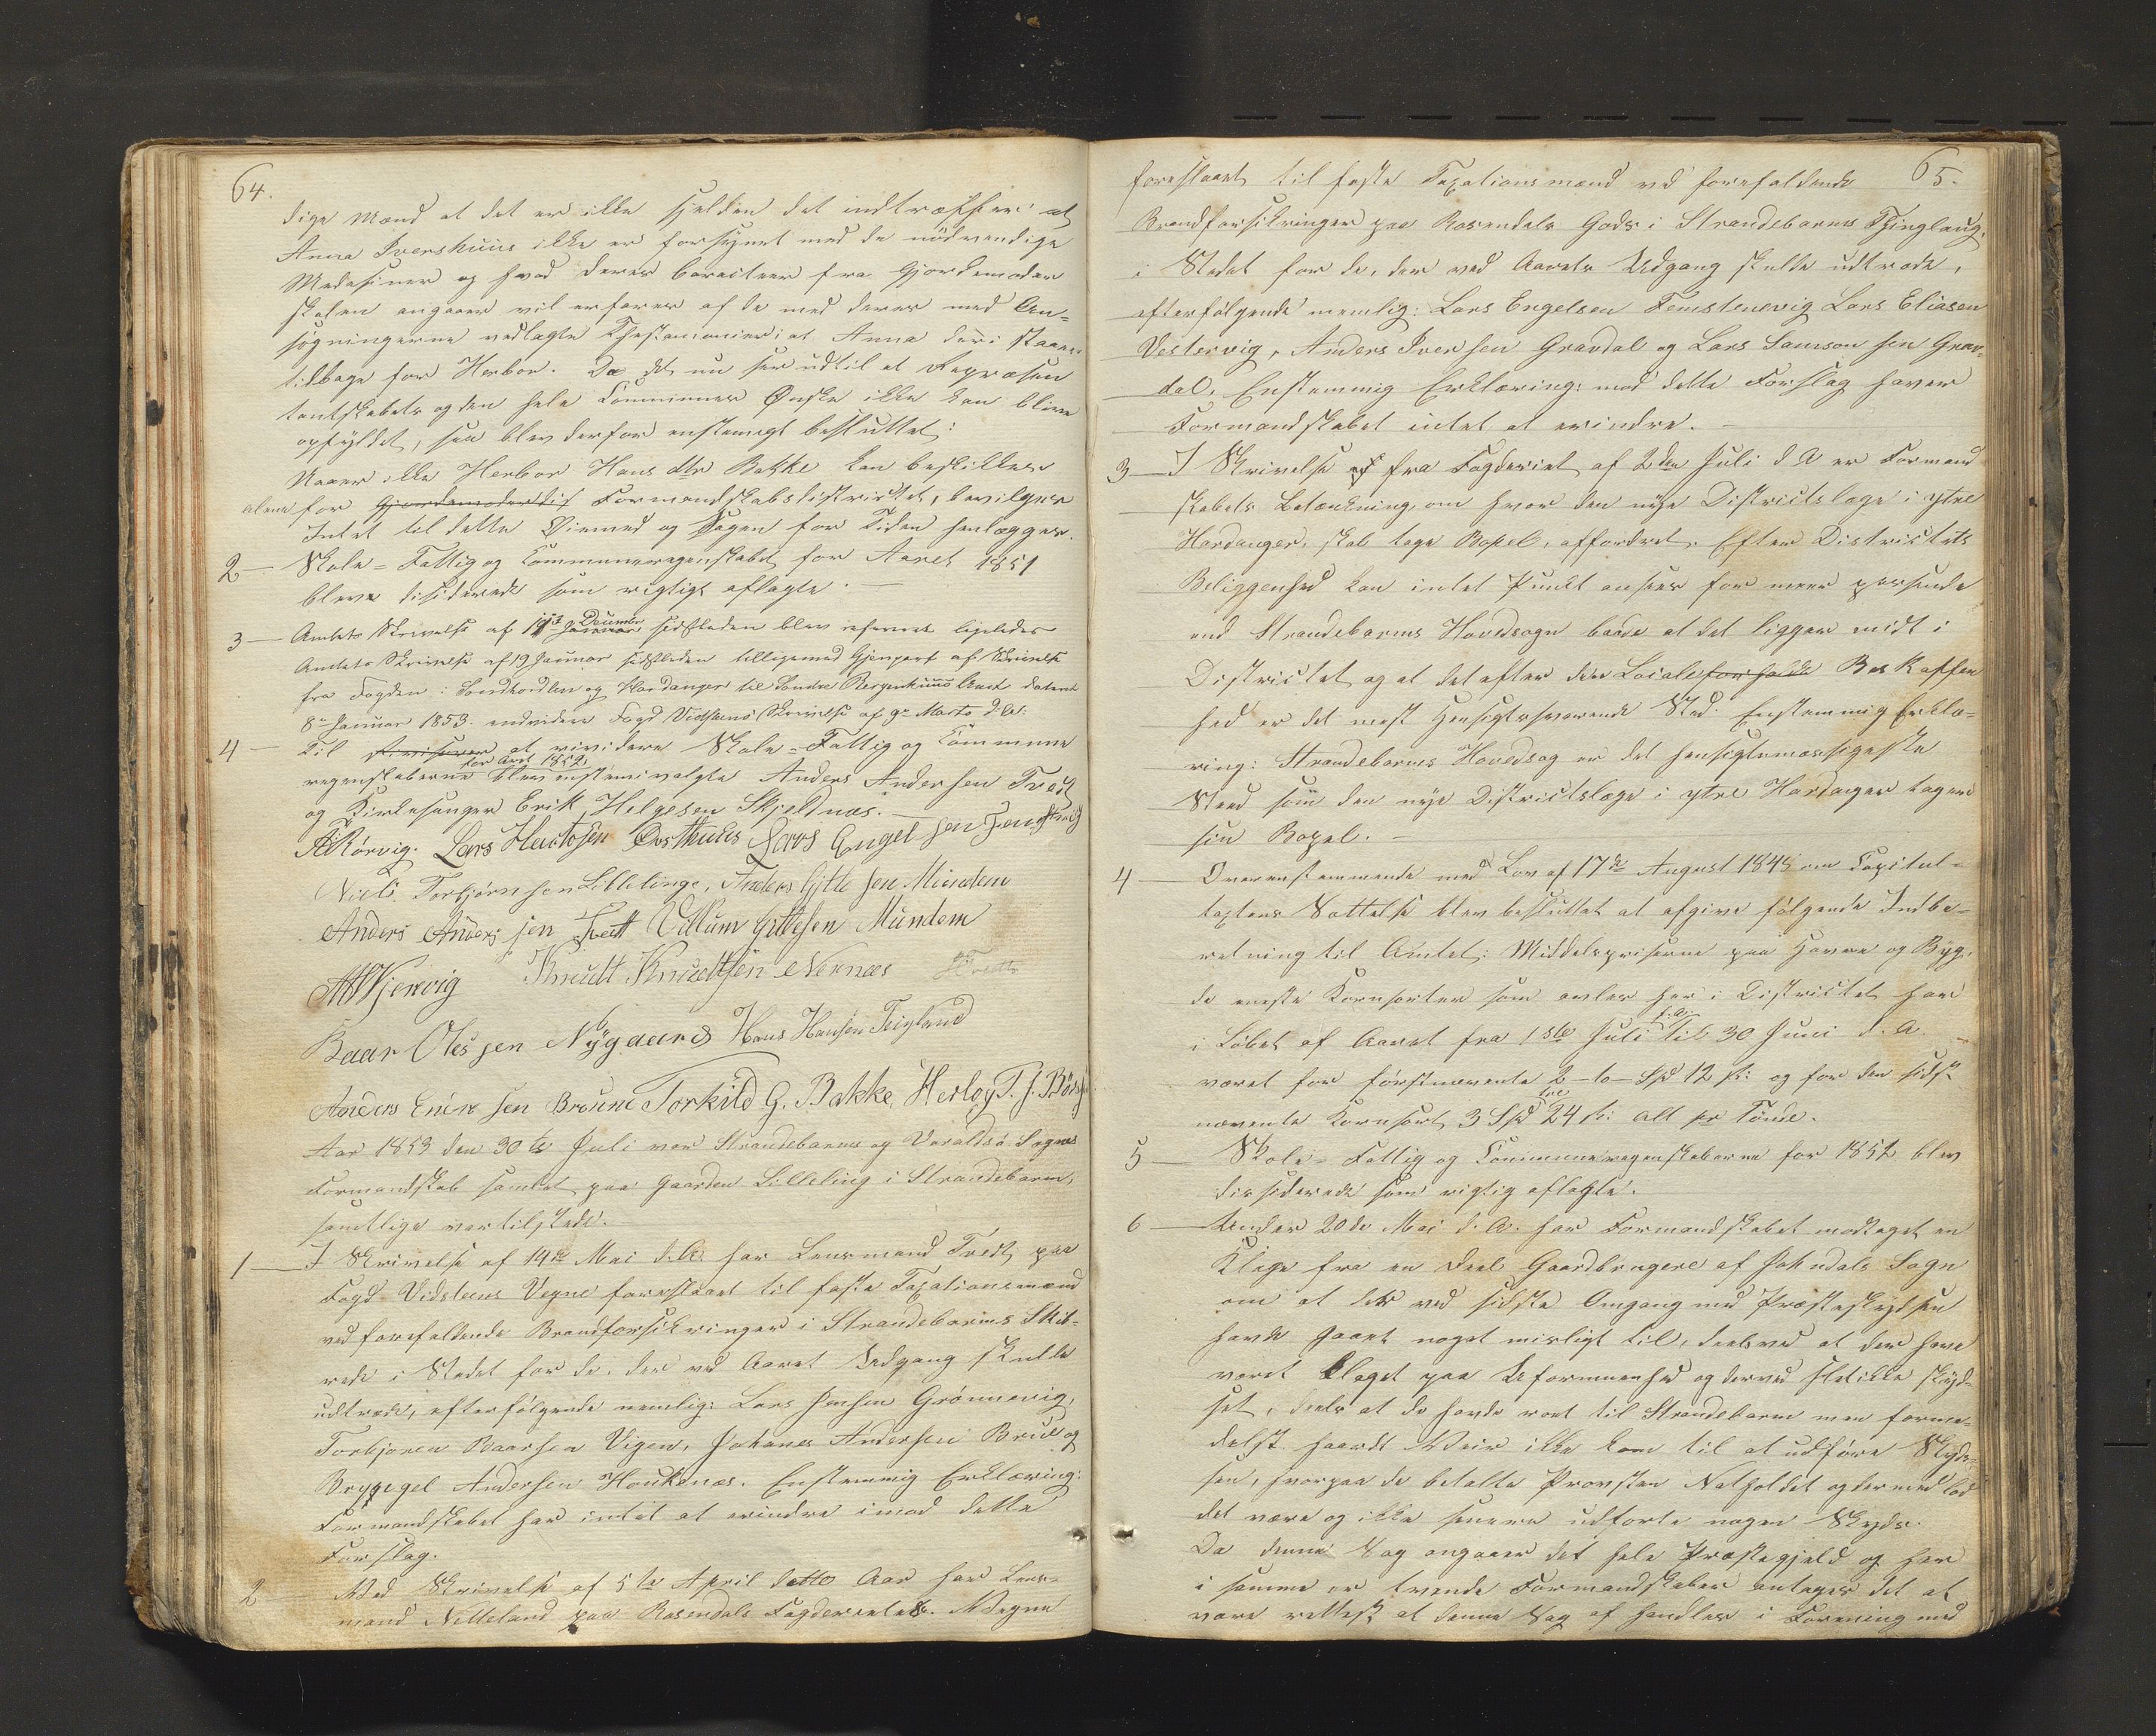 64.
dige Mænd at det er ikke sjelden det indtræffer at
Anna Ivershuus ikke er forsynet med de nödvendige
Medesiner og hvad deres Caracteer fra Gjordemoder
skolen angaaer vil erfares af de med deres med An-
søgningerne vedlagte Thestamonier; at Anna deri staaer
tilbage for Herbor. Da det nu seer ud til at Repræsen
tantskabets og den hele Communes Ønske ikke kan blive
opfyldet, saa blev derfor enstemigt besluttet:
Naaer ikke Herbor Hans dtr Bakke kan beskikkes
alene for Gjordemoderdist Formandskabsdistrictet, bevilges
Intet til dette Øiemed og Sagen for Tiden henlægges.
2 — Skole- Fattig og Communeregnskabet for Aaret 1851
bleve disiderede som rigtigt aflagte. —
3 — Amtets Skrivelse af 19de December sidstleden blev refereret ligeledes
Amtets Skrivelse af 19 Januar sidstleden tilligemed Gjenpart af Skrivelse
fra Fogden i Söndhordlen og Hardanger til Söndre Bergenhuus Amt dateret
8de Januar 1853. endvidere Fogd Vidsteens Skrivelse af 9de Marts d. A.
4 — Til Revisorer at rividere Skole- Fattig og Commune
regnskaberne for Aaret 1852 blev enstem: valgte Anders Andersen Tvedt
og Kirkesanger Erik Helgesen Skjeldnæs. —
A Rörvig. Lars Hactosen Ousthuus Lars Engel sen Femstenevig
Niels Torbjörnsen Lillelinge, Anders Gitle sen Mundem
Anders Anders sen Tvett Villum Gitlesen Mundem
Knudt Knudtsen Nernæs
Baar Oles sen Nÿgaard Hans Hansen Teigland
Anders Erik sen Bruue Torkild G. Bakke, Herloy T. s. Börs
Aar 1853 den 30te Juli var Strandebarms og Varaldsö Sognes
Formandskab samlet paa Gaarden Lilleling i Strandebarm,
samtlige var tilstede.
1 — I Skrivelse af 14de Mai d. A. har Lensmand Tvedt, paa
Fogd Vidsteens Vegne foreslaaet til faste Taxationsmænd
ved forefaldende Brandforsikringer i Strandebarms Skib-
rede i Stedet for de, der ved Aaret Udgang skulde
udtræde, efterfølgende nemlig: Lars Jensen Grönnevig,
Torbjören Baarsen Vigen, Johanes Andersen Brue og
Brygegel Andersen Haukenæs. Enstemmig Erklæring:
Formandskabet har intet at erindre imod dette
Forslag.
2 — Ved Skrivelse af 5te April dette Aar har Lens-
mand Netteland paa Rosendals Fogderietets Vegne
65.
foreslaaet til faste Taxationsmænd ved forefaldende
Brandforsikringer paa Rosendals Gods i Strandebarms Thinglaug,
i Stedet for de, der ved Aarets Udgang skulde udtræde,
efterfølgende nemlig: Lars Engelsen Femstenevig Lars Eliasen
Vestervig, Anders Iversen Gravdal og Lars Samson sen Grav-
dal. Enstemmig Erklæring: mod dette Forslag haver
Formandskabet intet at erindre. —
3 — I Skrivelse af fra Fogderiet af 2den Juli d A er Formand
skabets Betænkning om hvor den nye Districtslæge i ytre
Hardanger, skal tage Bopel, affordret. Efter Districtets
Beliggenhed kan intet Punkt ansees for mere passende
end Strandebarms Hovedsogn baade at det ligger midt i
Districtet og at det efter dere Locale forholde Beskaffen
hed er det mest Hensigtssvarende Sted. Enstemmig Erklæ-
ring: Strandebarms Hovedsog er det hensigtsmæssigeste
Steed som den nye Districtslæge i ytre Hardanger tager
sin Bopel. —
4 — Overenstemmende med Lov af 17de August 1845 om Capitel-
taxtens Sættelse blev besluttet at afgive følgende Indbe-
retning til Amtet: Middelspriserne paa Havre og Byg,
de eneste Kornsorter som avles her i Districtet har
i Løbet af Aaret fra 1ste Juli f. A. til 30 Juni d. A.
været for förstnævente 2 — to — Spd 12 ſk: og for den sidst
nævente Kornsort 3 tre Spd 24 ſk: alt pr Tønde.
5 — Skole- Fattig og Communeregnskaberne for 1852 blev
dissiderede som rigtig aflagte.
6 — Under 20de Mai d. A. har Formandskabet modtaget en
Klage fra en Deel Gaardbrugere af Johndals Sogn
om at det ved sidste Omgang med Præsteskydsen
havde gaaet noget misligt til, deels ved at der have
været klaget paa Uformuenhed og derved slet ikke skyd-
set, deels at de havde roet til Strandebarm men forme-
delst haardt Veir ikke kom til at udføre Skyds-
sen, hvorpaa de betalte Provsten Natholdet og dermed lod
det være og ikke senere udførte nogen Skyds.
Da denne Sag angaaer det hele Præstegjeld og her
i samme er tvende Formandskaber antages det at
være rettest at denne Sag afhandles i Forening med